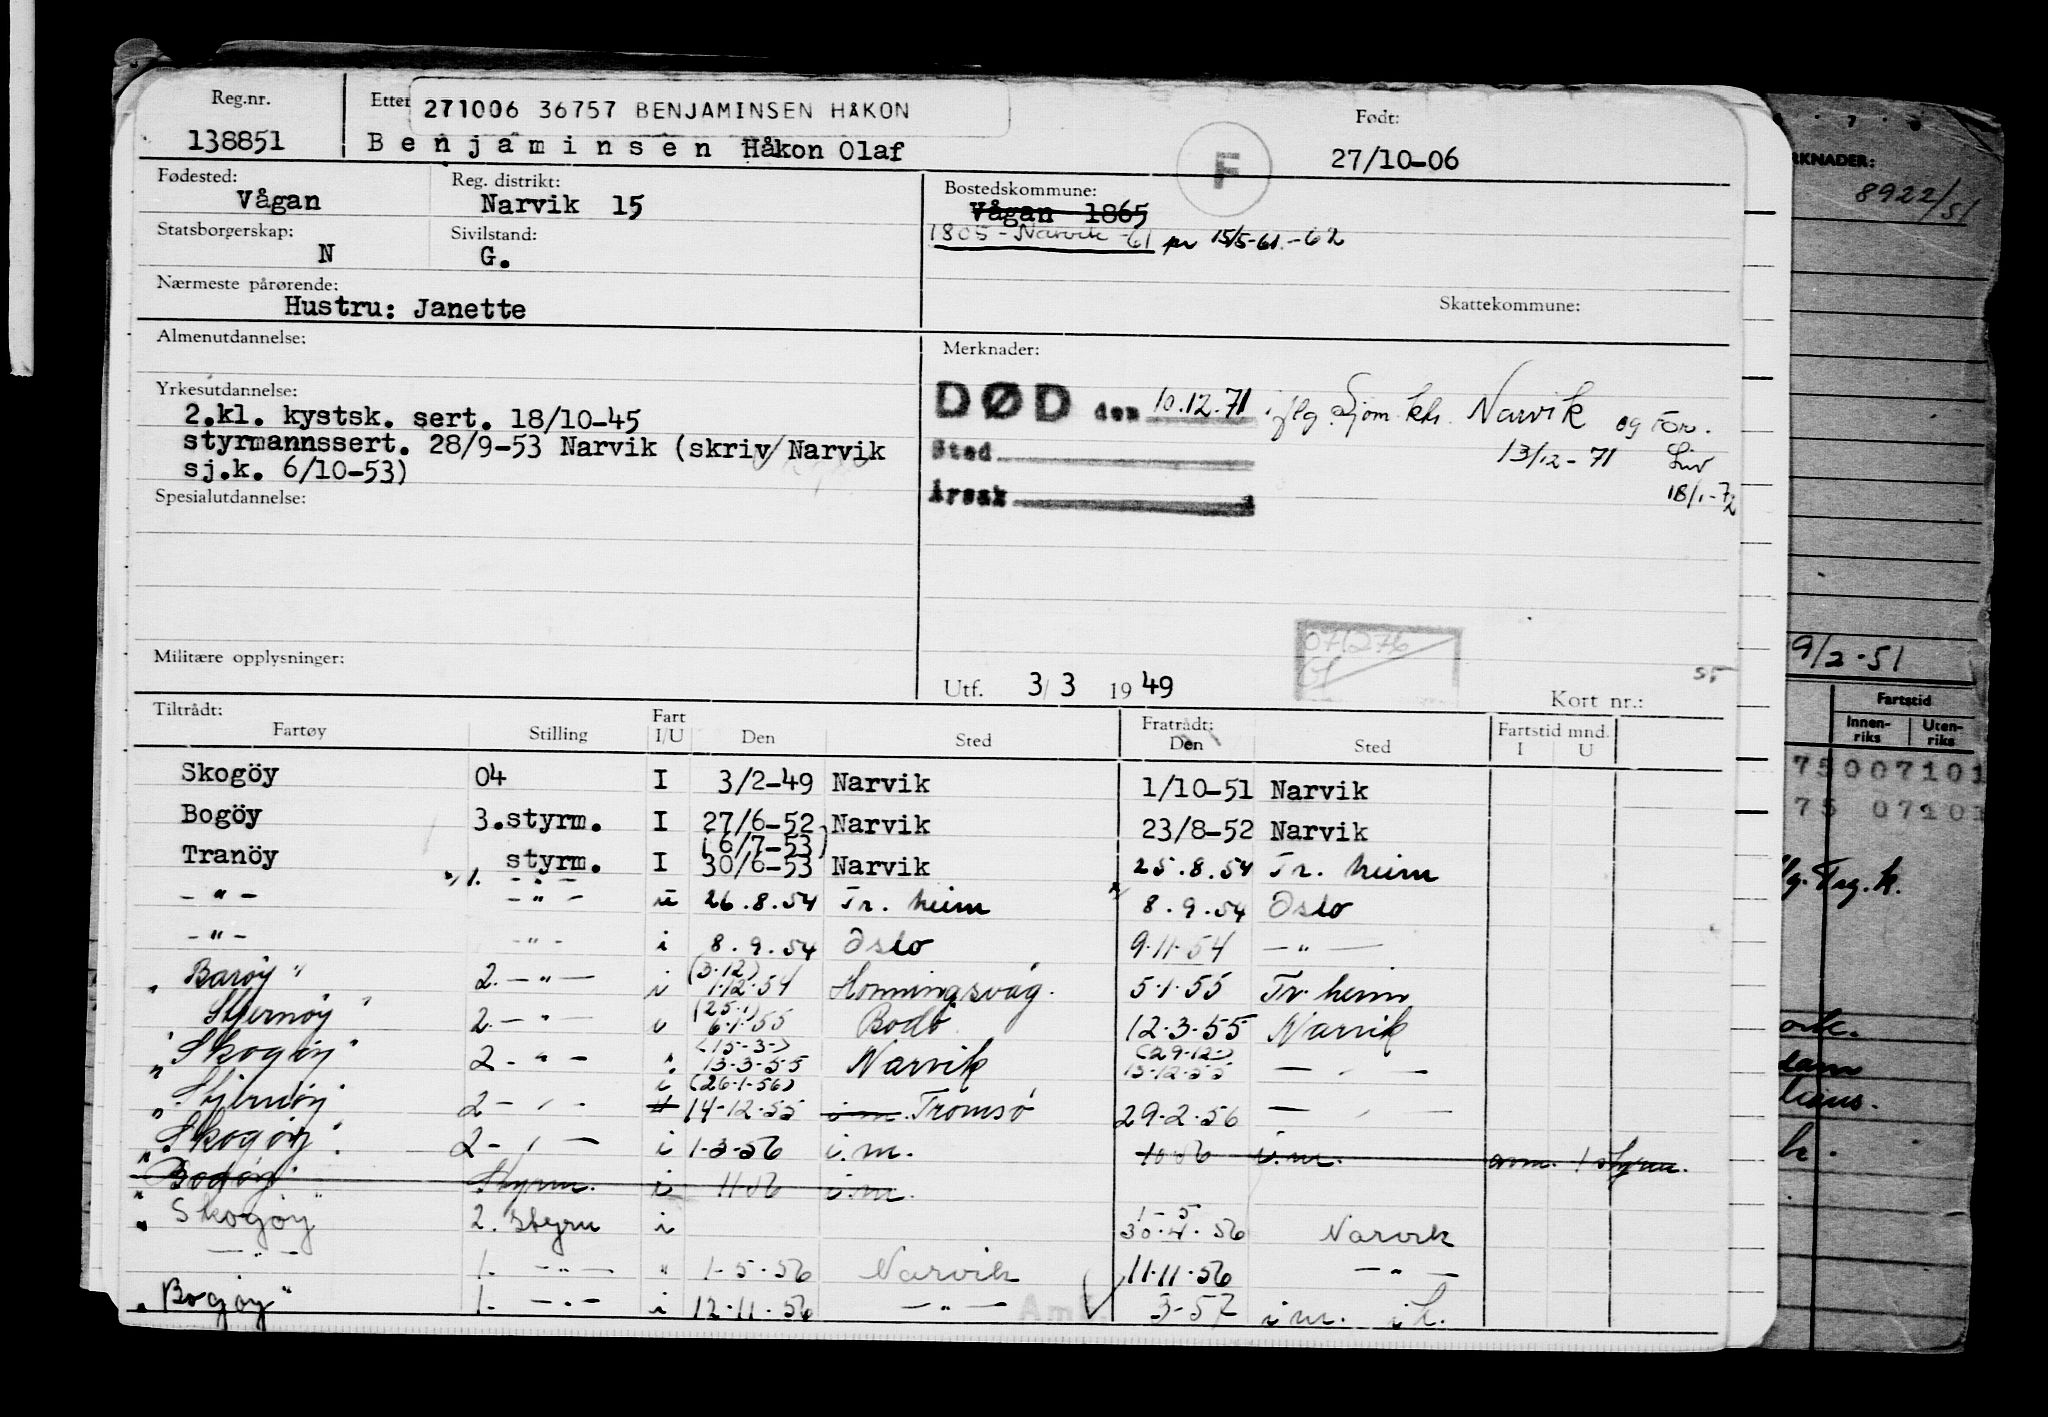 Reg.nr.
138851
Etter
271006 36757 BENJAMINSEN HÅKON
Benjaminsen Håkon Olaf
F
Født:
27/10-06
Fødested:
Vågan
Reg. distrikt:
Narvik 15
Bostedskommune:
Vågan 1865
1805 - Narvik -61 pr 15/5-61.-62
Statsborgerskap:
N
Sivilstand:
G.
Nærmeste pårørende:
Hustru: Janette
Skattekommune:
Almenutdannelse:
Merknader:
DØD den 10.12.71 iflg. Sjøm.ktr. Narvik og For.
Sted 13/12-71 Liv
Årsak 18/1-72
Yrkesutdannelse:
2.kl. kystsk. sert. 18/10-45
styrmannssert. 28/9-53 Narvik (skriv Narvik
sj.k. 6/10-53)
Spesialutdannelse:
071276
Militære opplysninger:
Utf. 3/3 1949
Kort nr.:
55
Tiltrådt:
Fartøy Stilling Fart I/U Den Sted Fratrådt: Den Sted Fartstid mnd. I U
Skogöy 04 I 3/2-49 Narvik 1/10-51 Narvik
Bogöy 3.styrm. I 27/6-52 Narvik 23/8-52 Narvik
(6/7-53)
Tranöy styrm. I 30/6-53 Narvik 25.8.54 Tr. heim
-"- 1. -"- u 26.8.54 Tr. heim 8.9.54 Oslo
-"- -"- i 8.9.54 Oslo 9.11.54 -"-
(3.12)
"Barøy" 2. -"- i 1.12.54 Honningsvåg. 5.1.55 Tr. heim
(25.1)
"Stjernøy" 2. -"- i 6.1.55 Bodö 12.3.55 Narvik
(15-3-) (29-12-)
"Skogøy" 2 -"- " 13-3-55 Narvik 13-12-55 -"-
(26-1-56)
"Stjernøy 2 -"- i 14-12-55 i.m. Tromsö 29.2.56 -"-
"Skogøy" 2 -"- i 1-3-56 i.m. 10 56 i.m. anm. 1 styrm.
"Bodøy" Styrm. i 11 56 i.m.
"Skogøy" 2. styrm i 30.4.56 Narvik
-"- 1. -"- " 1-5-56 Narvik 11.11.56 -"-
"Bogøy" 1. -"- i 12.11.56 -"- 3-57 i m. i k.
RKNADER:
8922/51
9/2-51
Fartstid
Innen-riks Uten-riks
75007101
75 07101